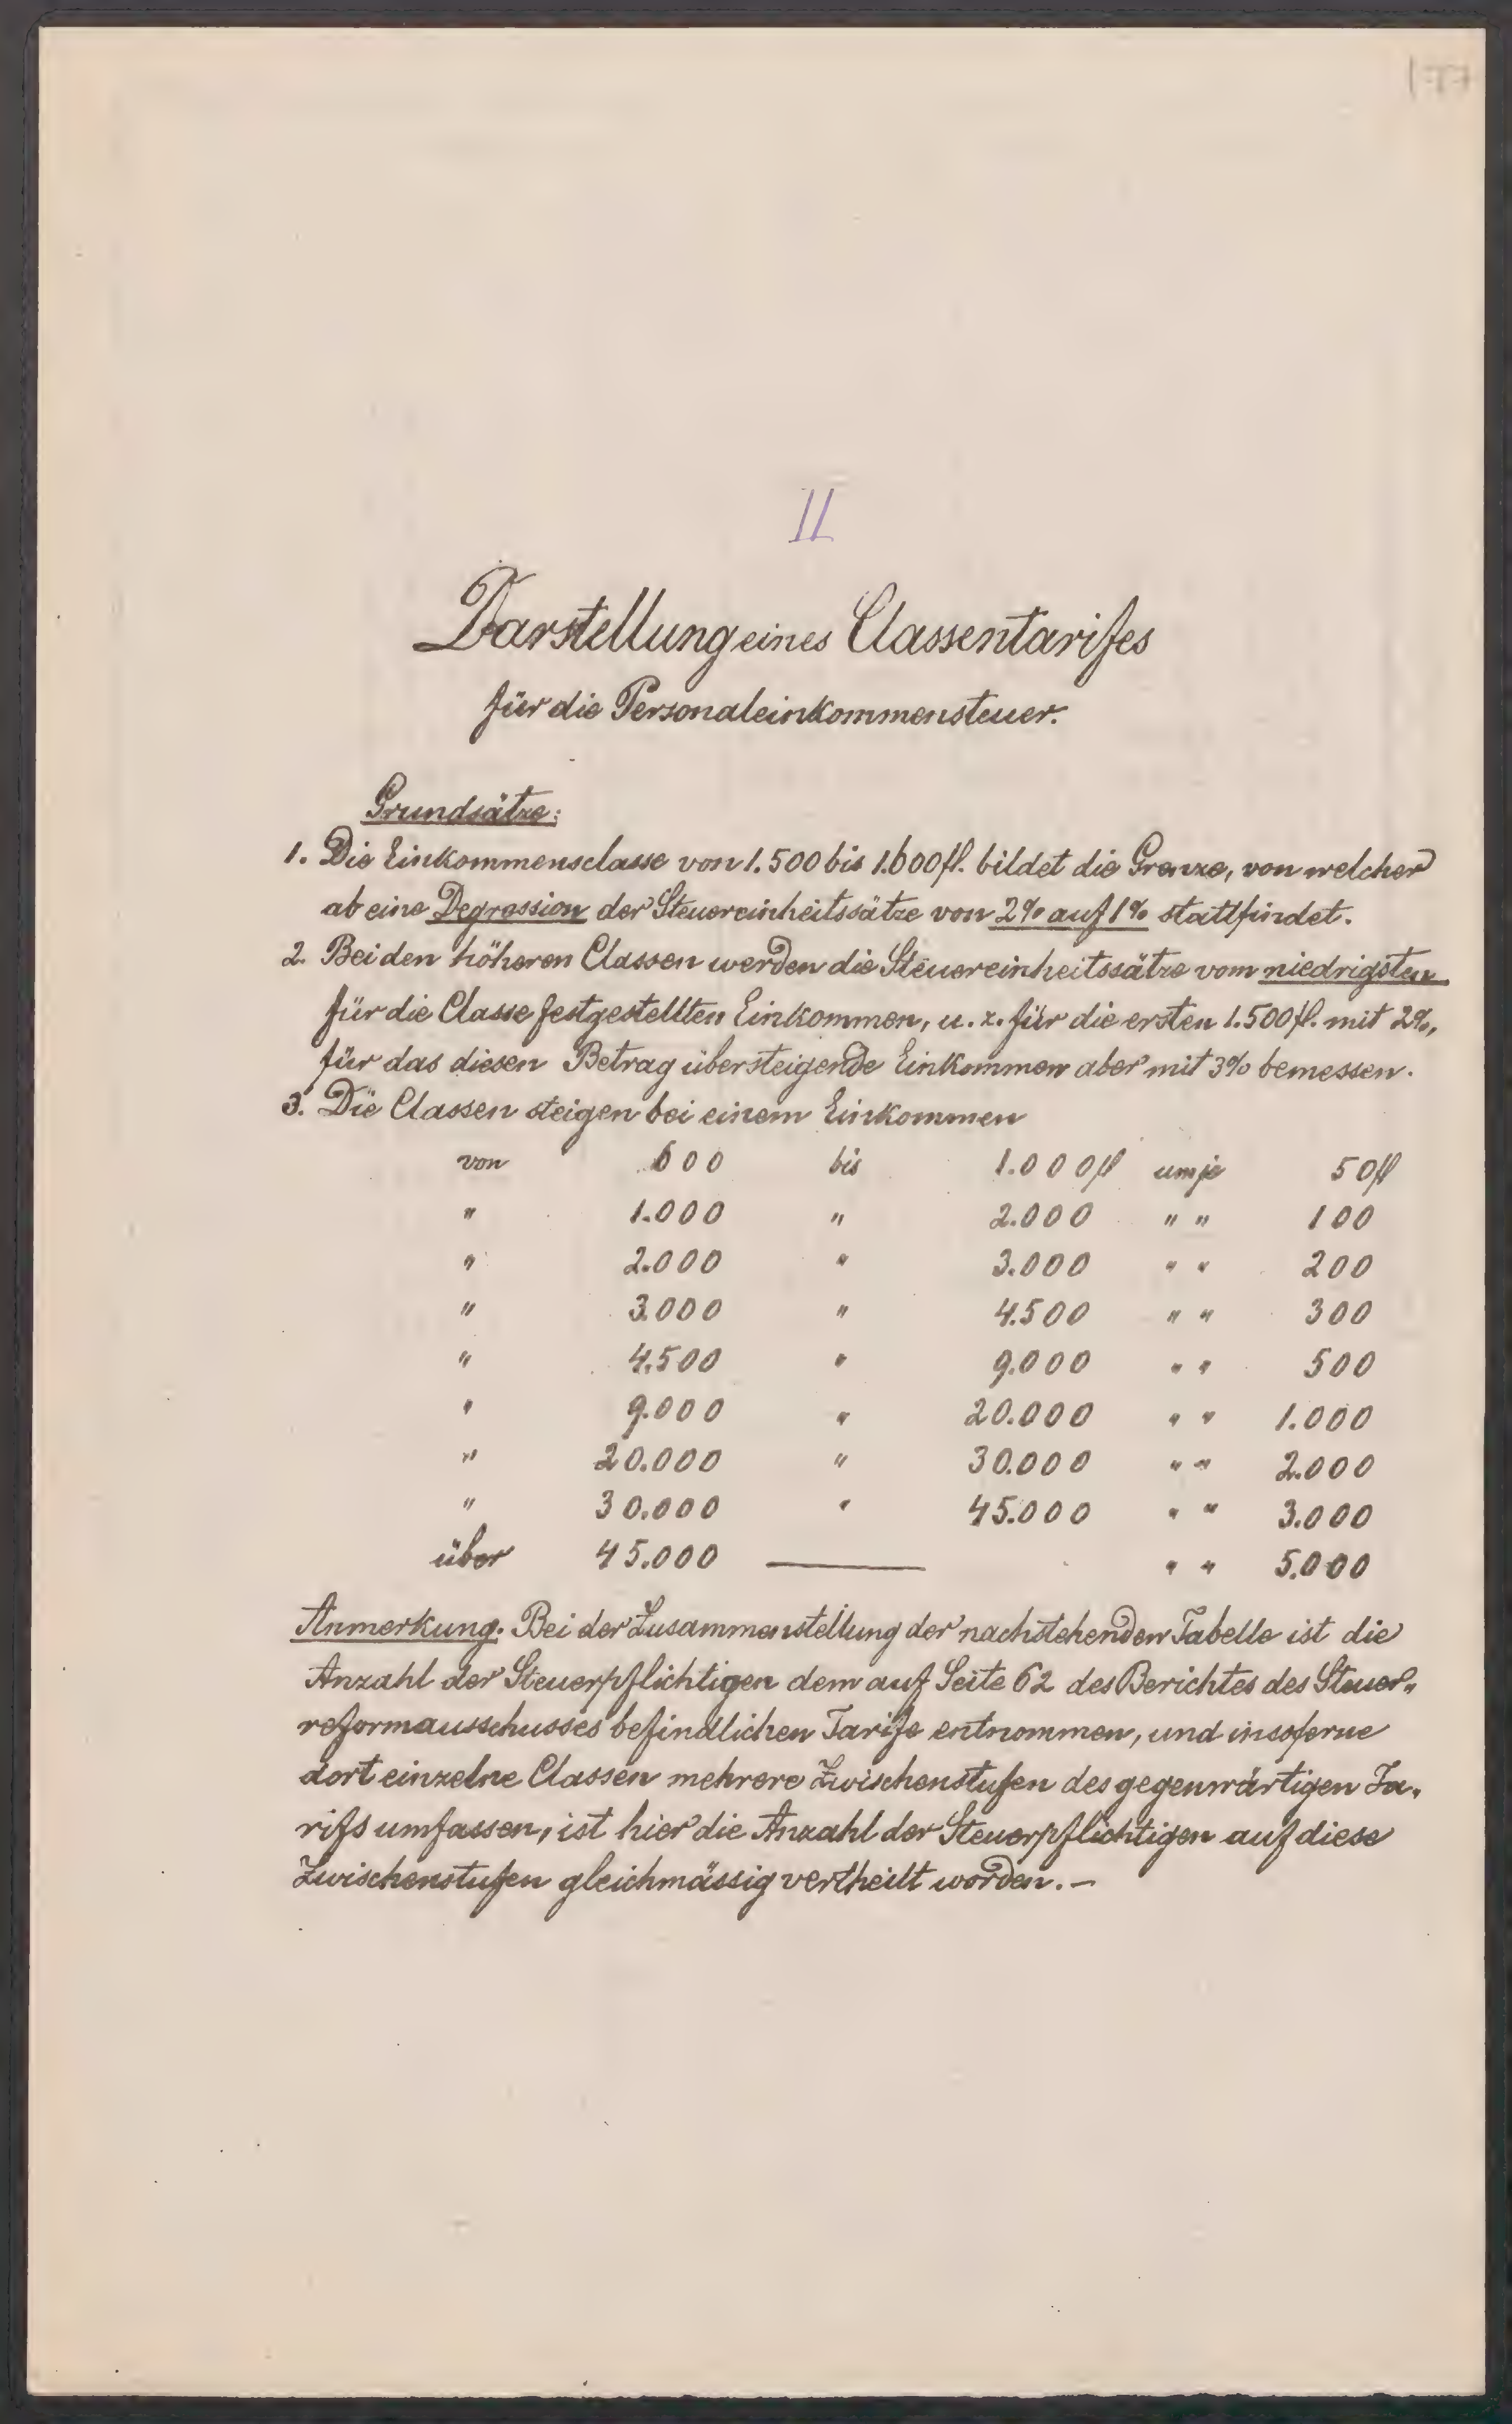 177
II
Darstellung eines Classentarifes
für die Personaleinkommensteuer.
Grundsätze:
1. Die Einkommensclasse von 1.500 bis 1.600 fl. bildet die Grenze, von welcher
ab eine Degression der Steuereinheitssätze von 2% auf 1% stattfindet.
2. Bei den höheren Classen werden die Steuereinheitssätze vom niedrigsten
für die Classe festgestellten Einkommen, u. z. für die ersten 1.500 fl. mit 2%,
für das diesen Betrag übersteigende Einkommen aber mit 3% bemessen.
3. Die Classen steigen bei einem Einkommen
von 600 bis 1.000 fl um je 50 fl
" 1.000 " 2.000 " " 100
" 2.000 " 3.000 " " 200
" 3.000 " 4.500 " " 300
" 4.500 " 9.000 " " 500
" 9.000 " 20.000 " " 1.000
" 20.000 " 30.000 " " 2.000
" 30.000 " 45.000 " " 3.000
über 45.000 — " " 5.000
Anmerkung. Bei der Zusammenstellung der nachstehenden Tabelle ist die
Anzahl der Steuerpflichtigen dem auf Seite 62 des Berichtes des Steuer-
reformausschusses befindlichen Tarife entnommen, und insoferne
dort einzelne Classen mehrere Zwischenstufen des gegenwärtigen Ta-
rifs umfassen, ist hier die Anzahl der Steuerpflichtigen auf diese
Zwischenstufen gleichmässig vertheilt worden. –